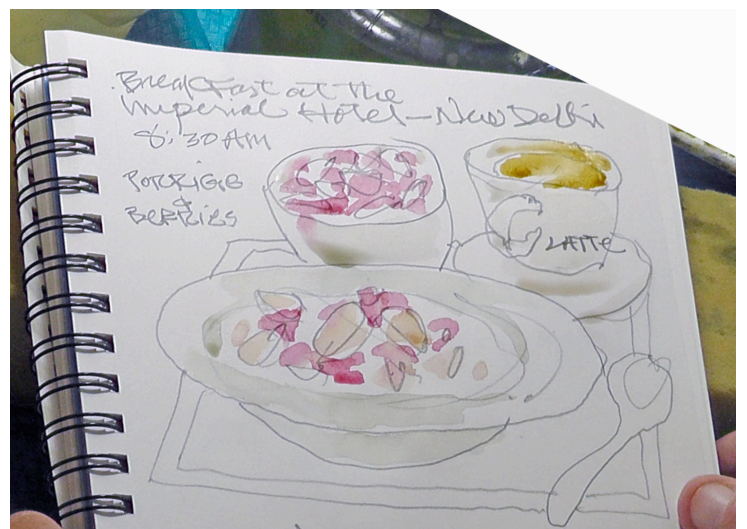 Breakfast at the
Imperial Hotel – New Delhi
8:30 AM
PORRIGE
&
BERRIES
LATTE